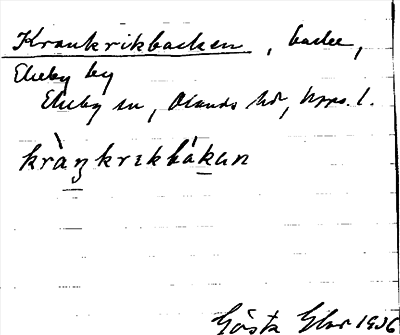 Krankrikbacken, backe,
Ekeby by
Ekeby sn, Olands hd, Upps. l.
kràŋkrɪkbákan
Gösta Elor 1936